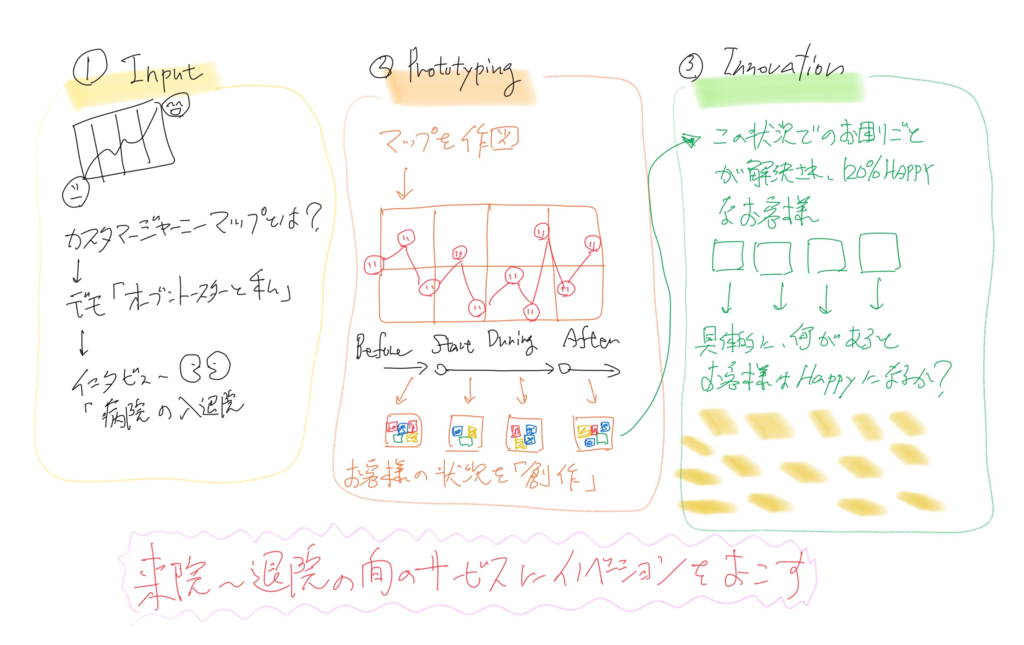 ① Input
カスタマージャーニーマップとは?
デモ「オーブントースターと私」
インタビュー
「病院の入退院
② Prototyping
マップを作図
Before Start During After
お客様の状況を「創作」
③ Innovation
この状況でのお困りごと
が解決され、120%HAPPY
なお客様
具体的に、何があると
お客様はHappyになるか?
来院〜退院の間のサービスにイノベーションをおこす